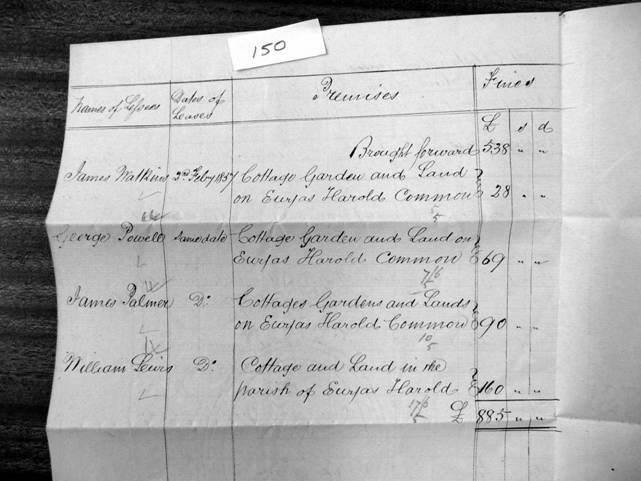 150
Names of Lessees Dates of Leases Premises Fines
£ s d
Brought forward 538 " "
James Watkins 2nd Feby 1857 Cottage Garden and Land
on Eurjas Harold Common 28 " "
5
George Powell same date Cottage Garden and Land on
Eurjas Harold Common 69 " "
7/6
James Palmer Do. Cottages Gardens and Lands
on Eurjas Harold Common 90 " "
10
5
William Lewis Do. Cottage and Land in the
parish of Eurjas Harold 160 " "
17/6
£ 885 " "